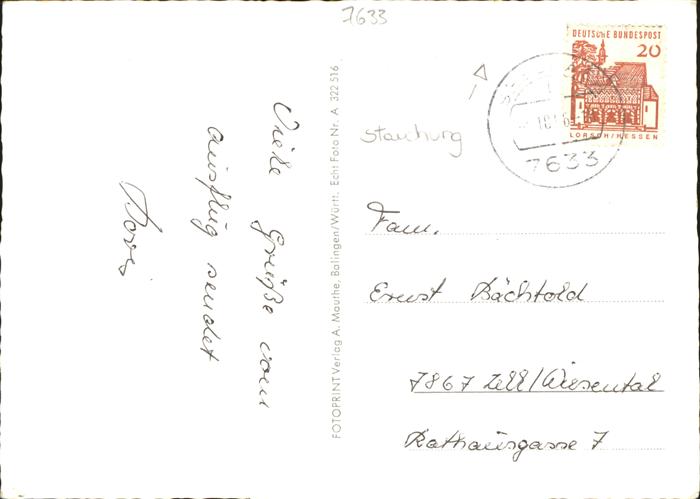 7633
DEUTSCHE BUNDESPOST
20
LORSCH/HESSEN
7633
stauchung
Viele Grüße vom
ausflug sendet
Doris
FOTOPRINT Verlag A. Mauthe, Balingen/Württ. Echt Foto Nr. A 322 516
Fam.
Ernst Bächtold
7867 Zell/Wiesental
Rathausgasse 7